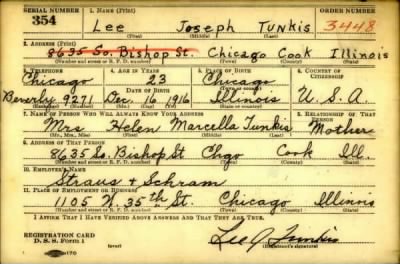 SERIAL NUMBER 1. NAME (Print) ORDER NUMBER
354 Lee Joseph Tunkis 3448
(First) (Middle) (Last)
2. ADDRESS (Print)
8635 So. Bishop St. Chicago Cook Illinois
(Number and street or R. F. D. number) (Town) (County) (State)
3. TELEPHONE 4. AGE IN YEARS 5. PLACE OF BIRTH 6. COUNTRY OF CITIZENSHIP
Chicago 23 Chicago
DATE OF BIRTH (Town or county)
Beverly 9271 Dec. 16 1916 Illinois U. S. A.
(Exchange) (Number) (Mo.) (Day) (Yr.) (State or country)
7. NAME OF PERSON WHO WILL ALWAYS KNOW YOUR ADDRESS 8. RELATIONSHIP OF THAT PERSON
Mrs Helen Marcella Tunkis Mother
(Mr., Mrs., Miss) (First) (Middle) (Last)
9. ADDRESS OF THAT PERSON
8635 So. Bishop St Chgo Cook Ill.
(Number and street or R. F. D. number) (Town) (County) (State)
10. EMPLOYER'S NAME
Straus + Schram
11. PLACE OF EMPLOYMENT OR BUSINESS
1105 W. 35th St. Chicago Illinois
(Number and street or R. F. D. number) (Town) (County) (State)
I AFFIRM THAT I HAVE VERIFIED ABOVE ANSWERS AND THAT THEY ARE TRUE.
REGISTRATION CARD
D. S. S. Form 1 Lee J Tunkis
(Registrant's signature)